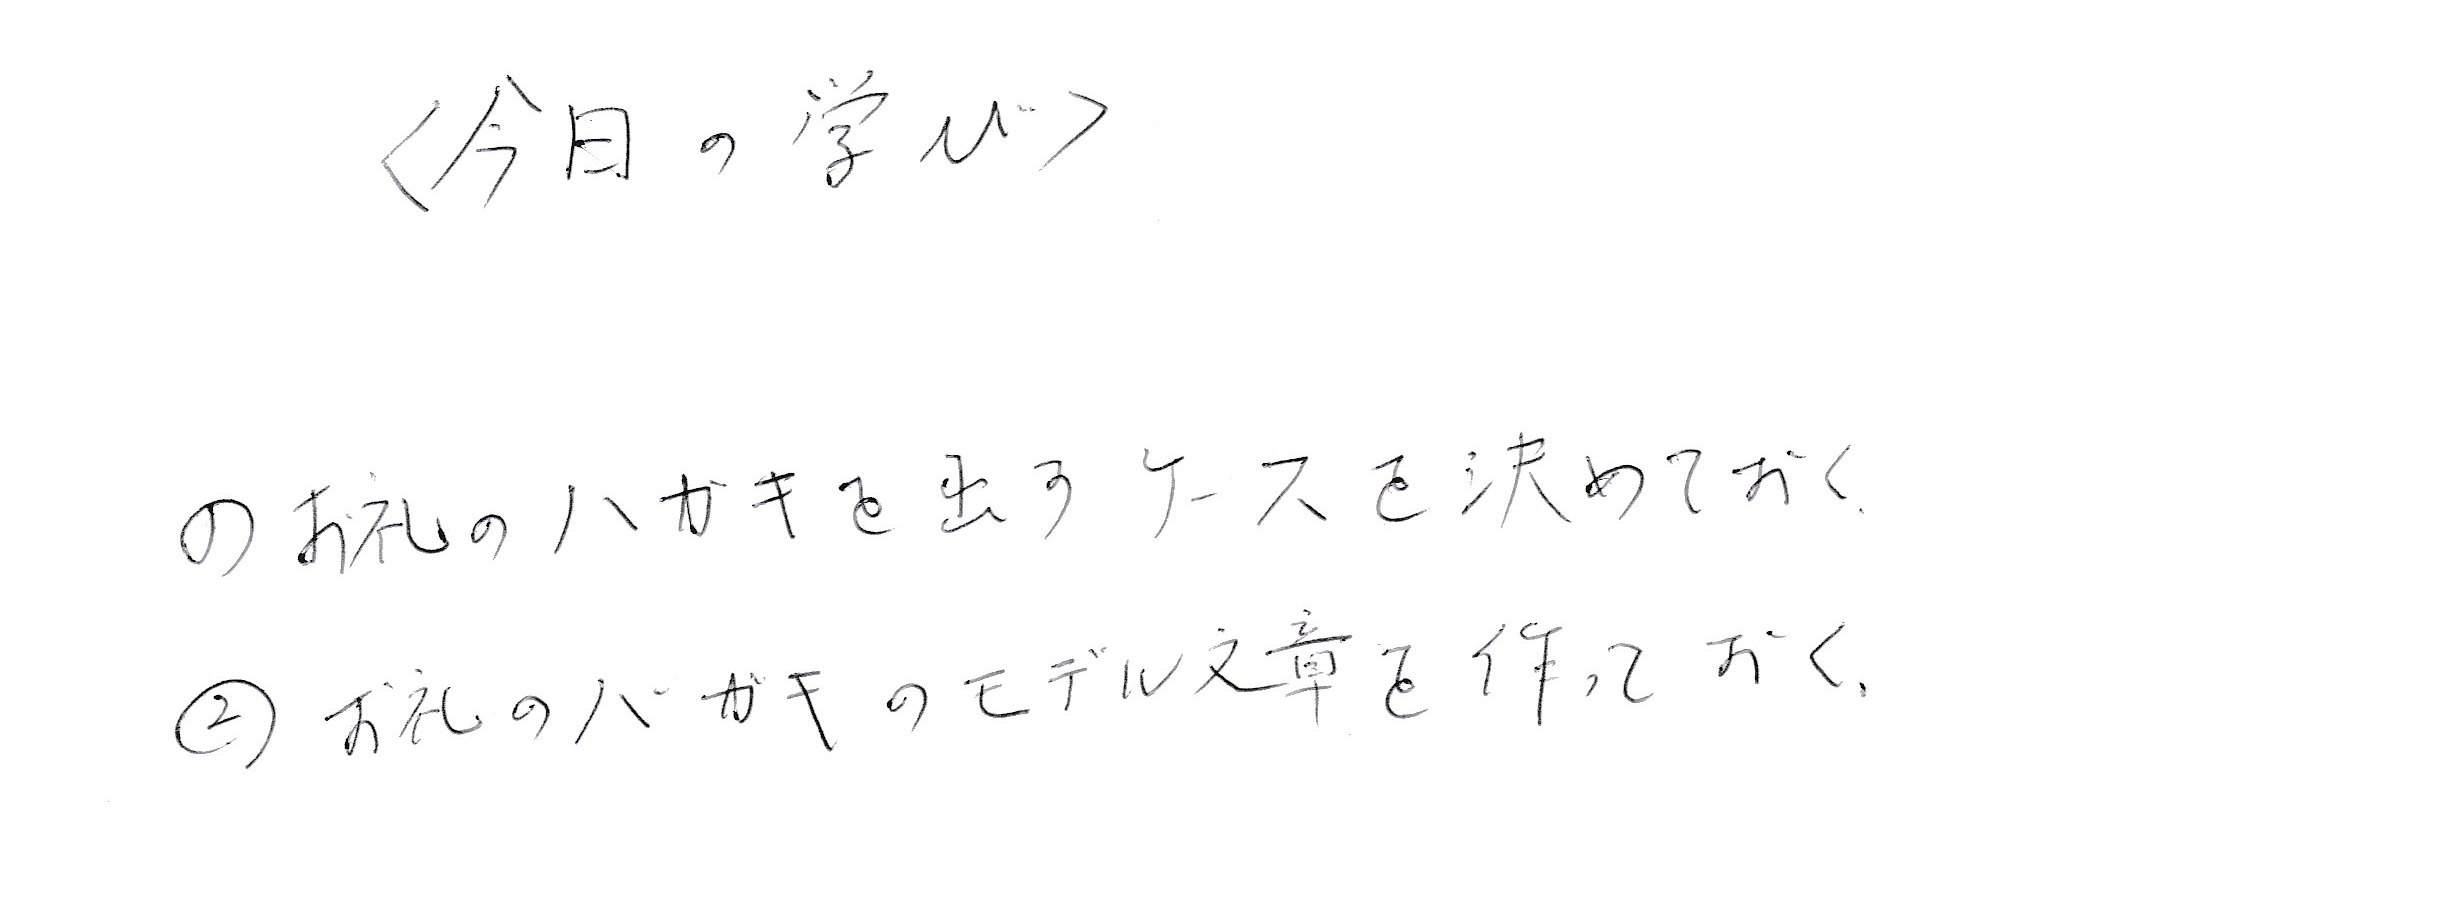 <今日の学び>
① お礼のハガキを出すケースを決めておく.
② お礼のハガキのモデル文章を作っておく.